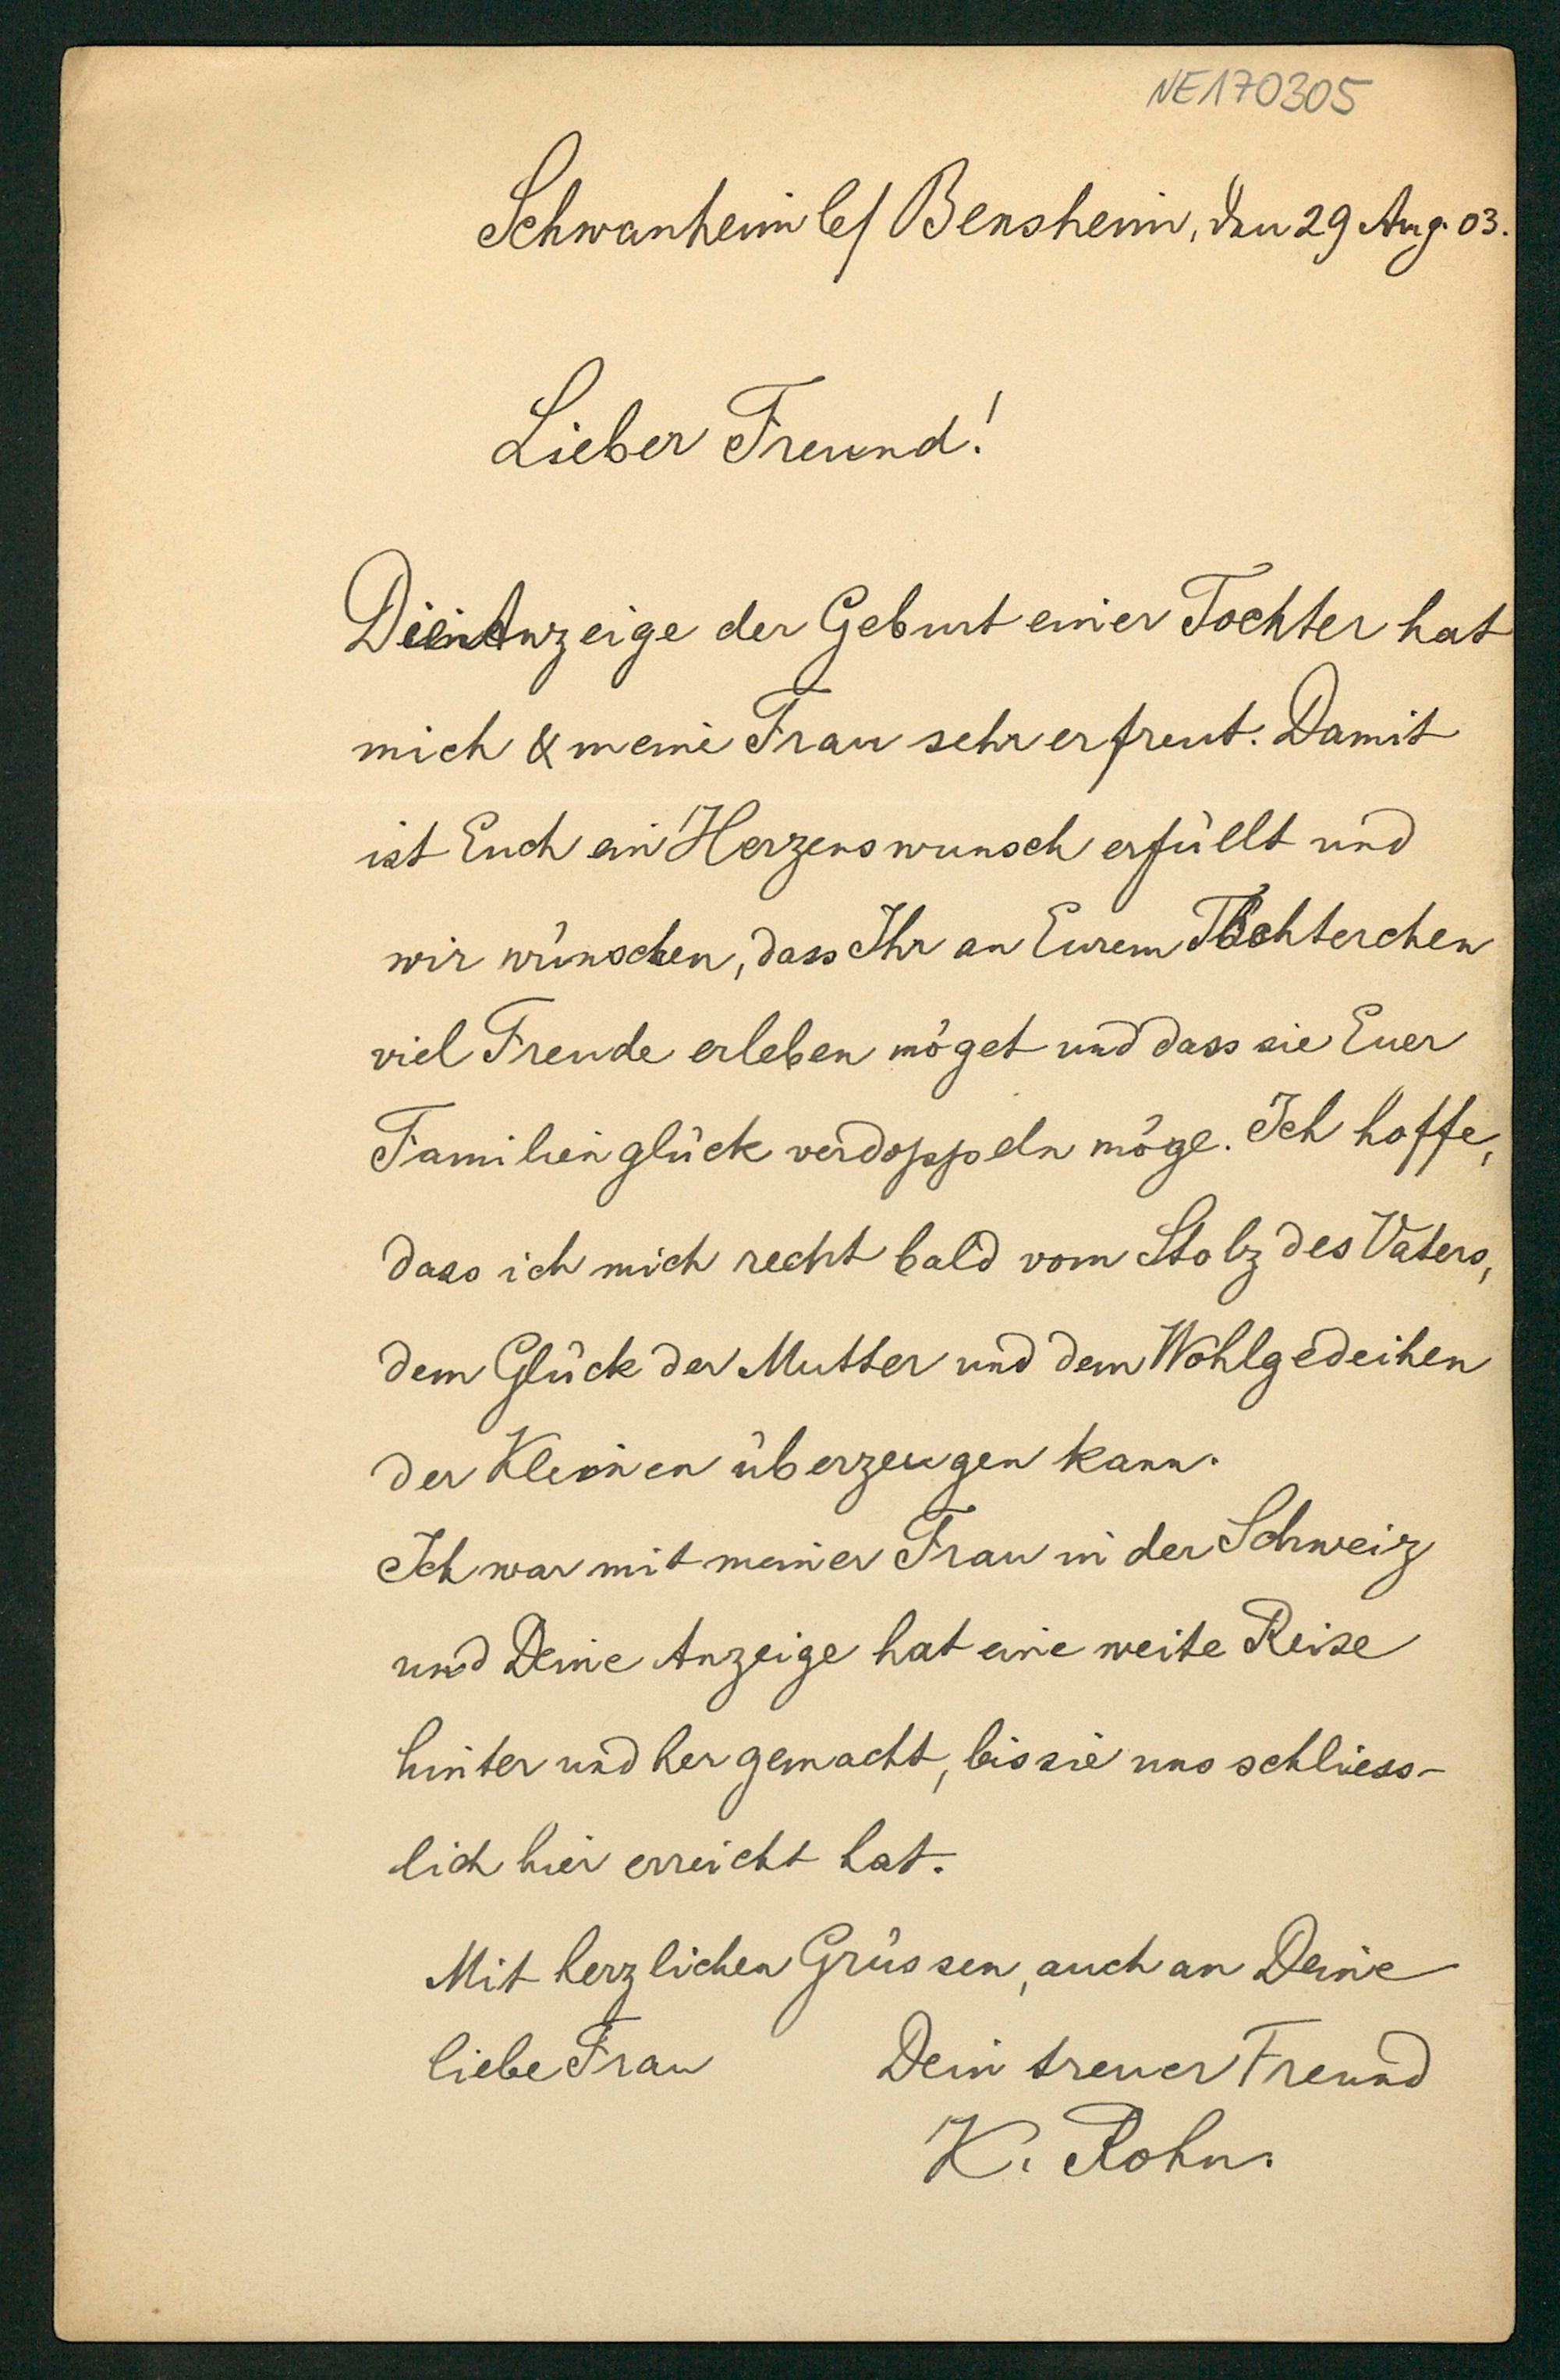 NE170305
Schwanheim b/ Bensheim, den 29 Aug. 03.
Lieber Freund!
Die Anzeige der Geburt einer Tochter hat
mich & meine Frau sehr erfreut. Damit
ist Euch ein Herzenswunsch erfüllt und
wir wünschen, dass Ihr an Eurem Töchterchen
viel Freude erleben möget und dass sie Euer
Familienglück verdoppeln möge. Ich hoffe,
dass ich mich recht bald vom Stolz des Vaters,
dem Glück der Mutter und dem Wohlgedeihen
der Kleinen überzeugen kann.
Ich war mit meiner Frau in der Schweiz
und Deine Anzeige hat eine weite Reise
hinter und her gemacht, bis sie uns schliess-
lich hier erreicht hat.
Mit herzlichen Grüssen, auch an Deine
liebe Frau Dein treuer Freund
K. Rohn.